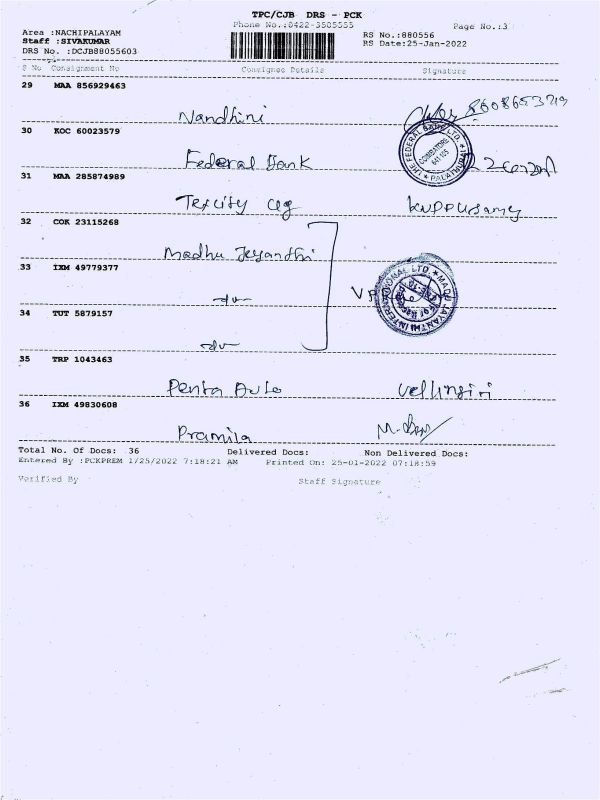 TPC/CJB DRS - PCK
Phone No.:0422-3505555
Page No.:3
Area :NACHIPALAYAM
Staff :SIVAKUMAR
DRS No. :DCJB88055603
RS No.:880556
RS Date:25-Jan-2022
S No Consignment No Consignee Details Signature
29 MAA 856929463
Nandhini
30 KOC 60023579
THE FEDERAL BANK LTD.
COIMBATORE
641 105
Federal Bank
31 MAA 285874989
Texcity
Kuppusamy
32 COK 23115268
Madhu Jeyanthi
33 IXM 49779377
MADHU JAYANTHI INTERNATIONAL LTD.
34 TUT 5879157
35 TRP 1043463
Penta Auto Vellingiri
36 IXM 49830608
Pramila
Total No. Of Docs: 36 Delivered Docs: Non Delivered Docs:
Entered By :PCKPREM 1/25/2022 7:18:21 AM Printed On: 25-01-2022 07:18:59
Verified By Staff Signature